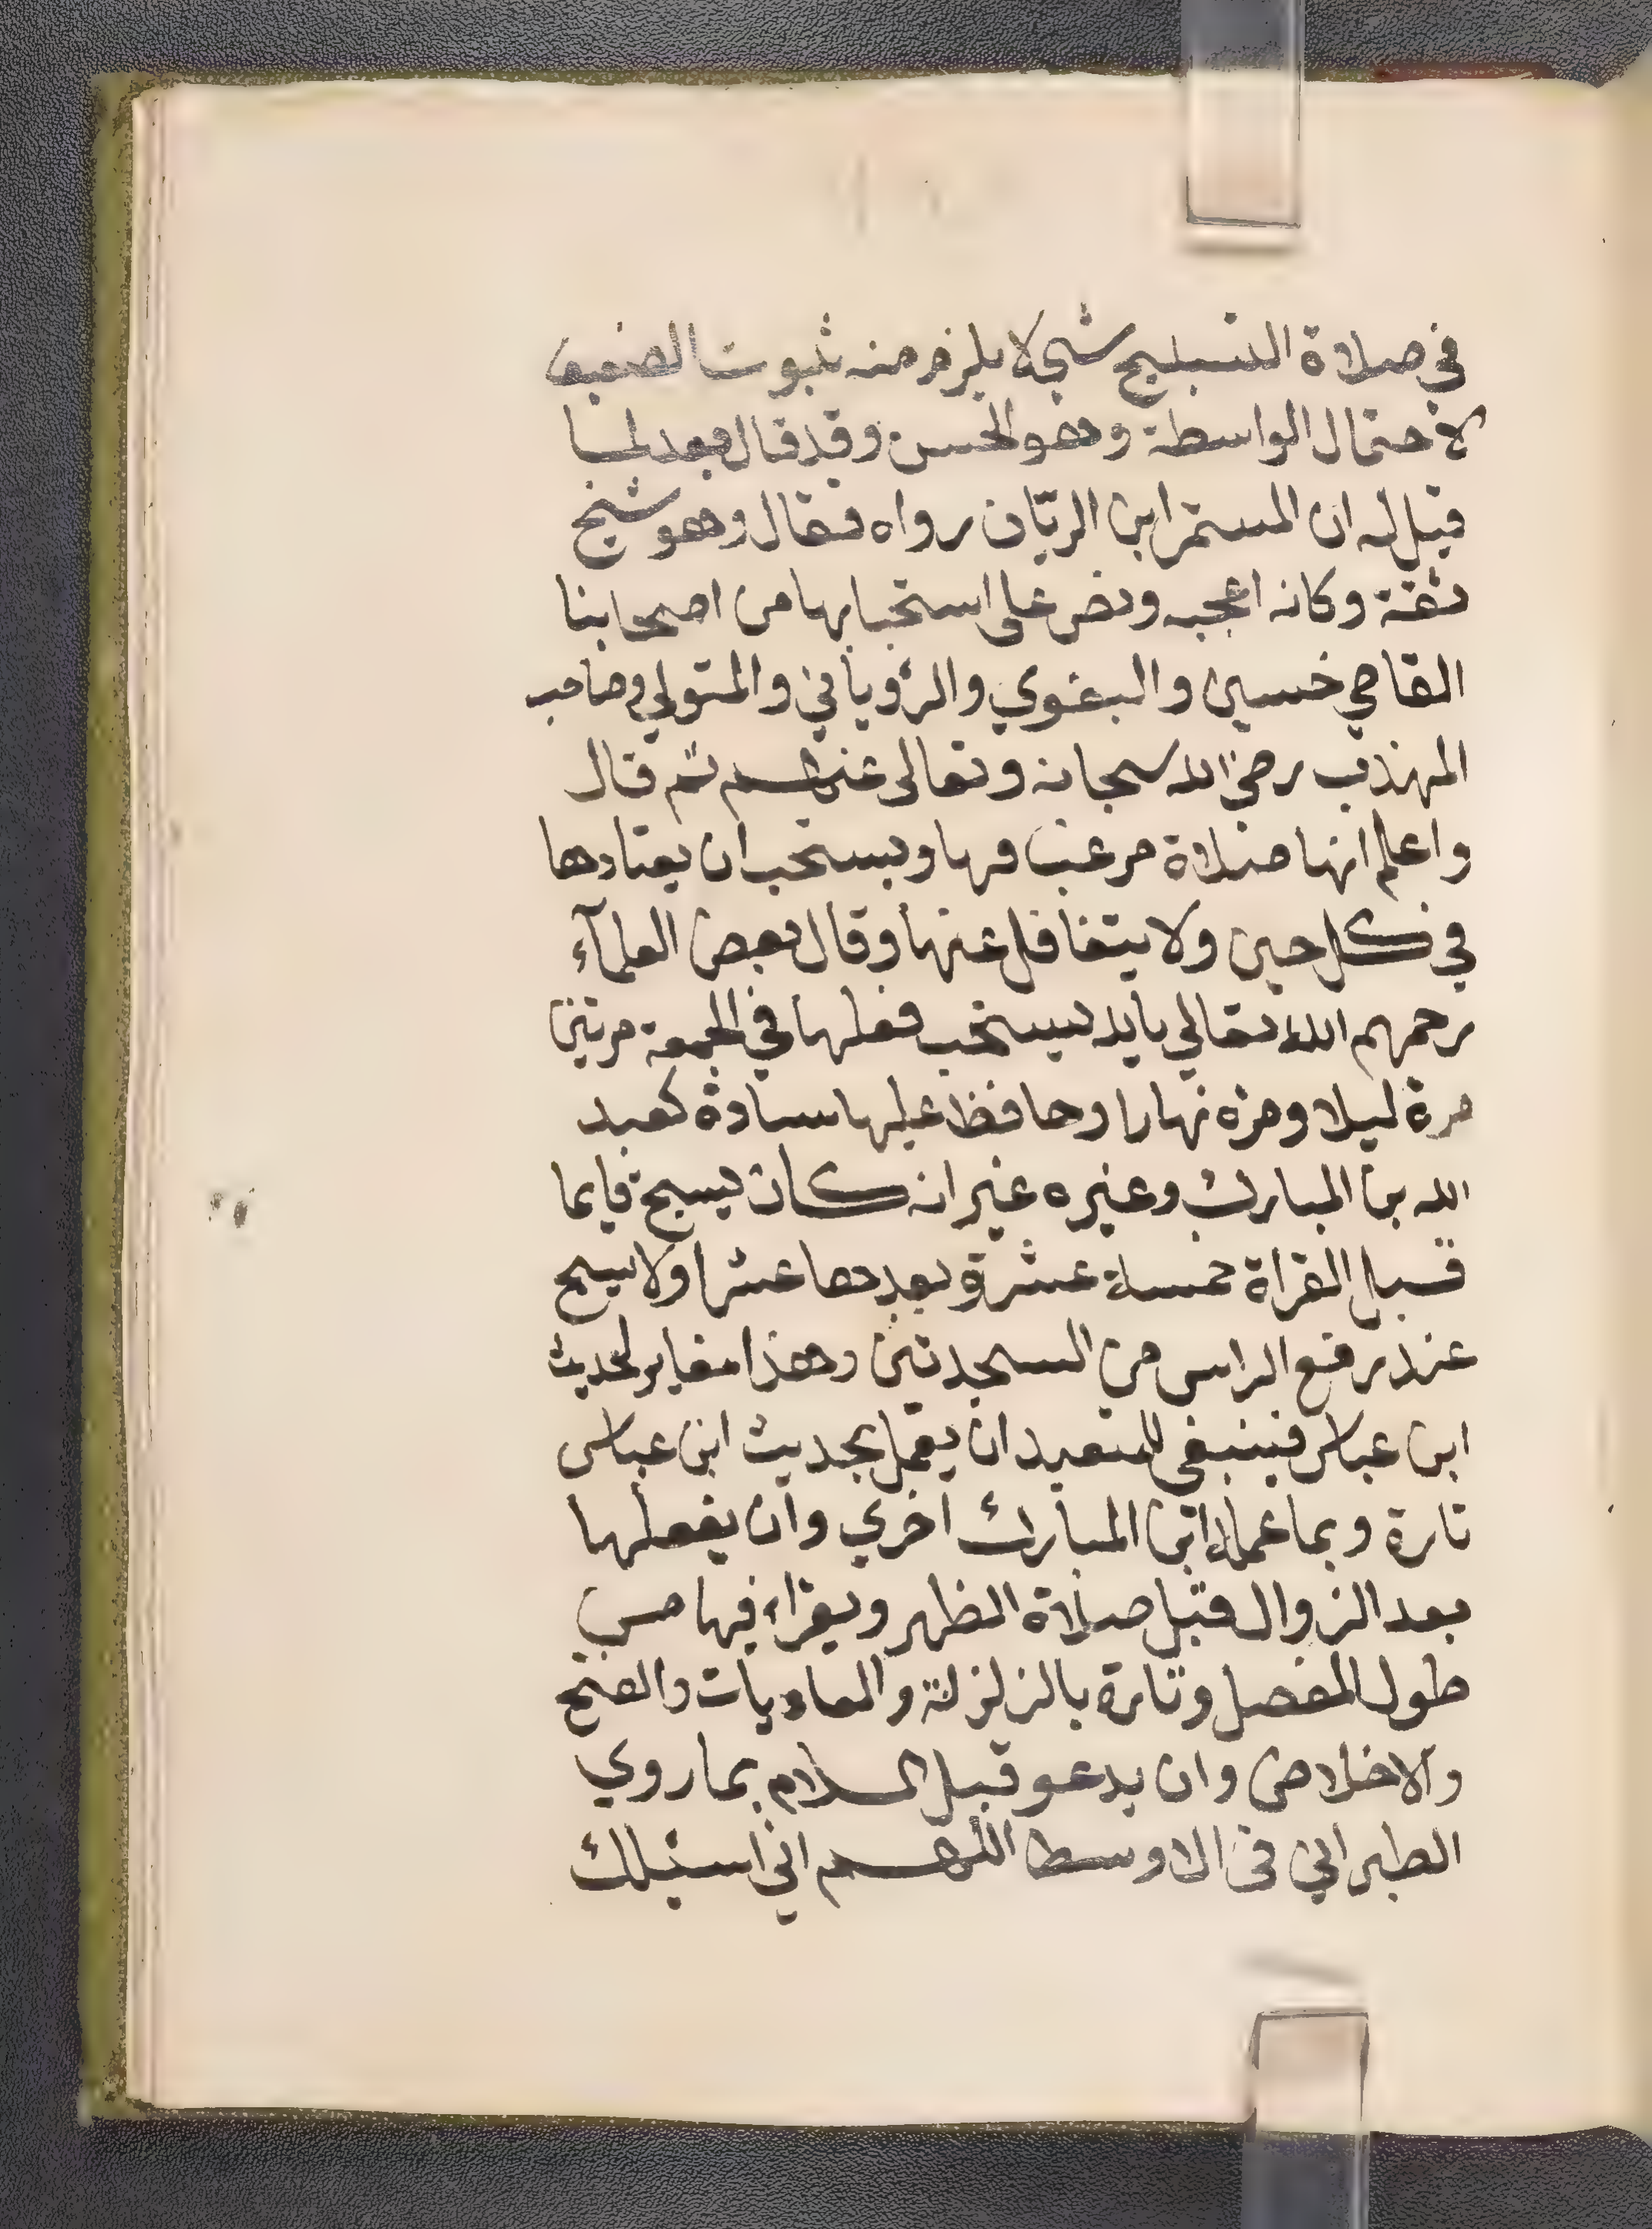 في صلاة التسبيح شي لا يلزم منه ثبوت الضعيف
لاحتمال الواسطة وهو الحسن وقد قال بعد لما
قيل له ان المستمر ابن الريّان رواه فقال وهو شيخ
ثقة وكانه اعجبه ونص على استحبابها من اصحابنا
القاضي حسين والبغوي والرؤياني والمتولي وصاحب
المهذب رضي الله سبحانه وتعالى عنهم ثم قال
واعلم انها صلاة مرغب فيها ويستحب ان يعتادها
في كل حين ولا يتغافل عنها وقال بعض العلمآء
رحمهم الله تعالي يستحب فعلها في الجمعة مرتين
مرة ليلا ومرة نهارا وحافظ عليها سادة كعبد
الله بن المبارك وغيره غير انه كان يسبح قايما
قبل القراة خمسة عشرة وبعدها عشرا ولا يسبح
عند رفع الراس من السجدتين وهذا مغاير لحديث
ابن عباس فينبغي للمتعبد ان يعمل بحديث ابن عباس
تارة وبما عمله ابن المبارك اخري وان يفعلها
بعد الزوال قبل صلاة الظهر ويقراء فيها من
طول المفصل وتارة بالزلزلة والعاديات والفتح
والاخلاص وان يدعو قبل السلام بما روي
الطبراني في الاوسط اللهم اني اسئلك